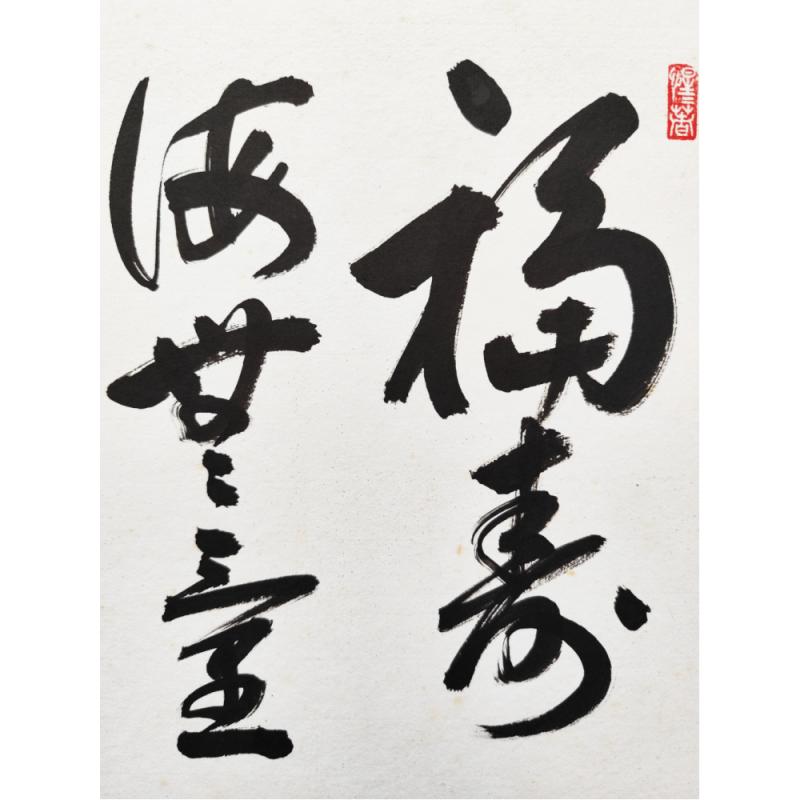 福寿
海無量